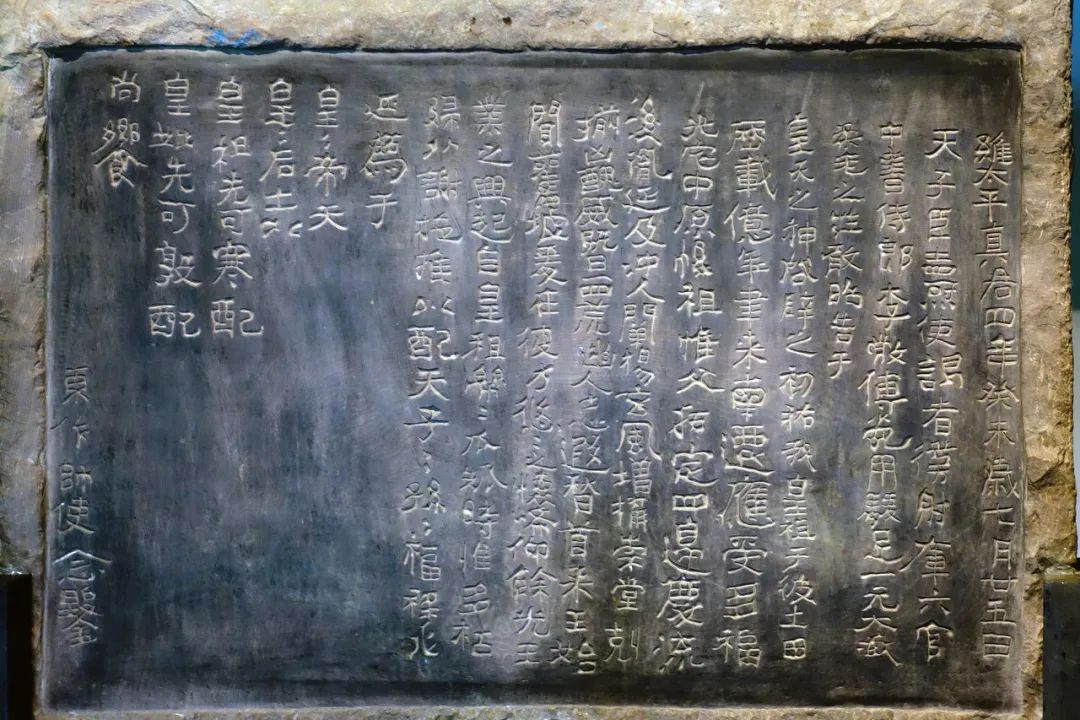 維太平真君四年癸未歲七月廿五日
天子臣燾使謁者僕射庫六官
中書侍郎李敞傅㝹用駿足一元大武
柔毛之牲敢昭告于
皇天之神啟辟之初祐我皇祖于彼土田
歷載億年聿來南遷應受多福
光宅中原惟祖惟父拓定四邊慶流
後胤延及沖人闡揚玄風增構崇堂剋
揃凶醜威暨四荒幽人忘遐稽首來王始
聞舊墟爰在彼方悠〻之懷希仰餘光王
業之興起自皇祖緜〻瓜瓞時惟多祜
歸以謝施推以配天子〻孫〻福祿永
延薦于
皇〻帝天
皇〻后土以
皇祖先可寒配
皇妣先可敦配
尚饗
東作帥使念鑿